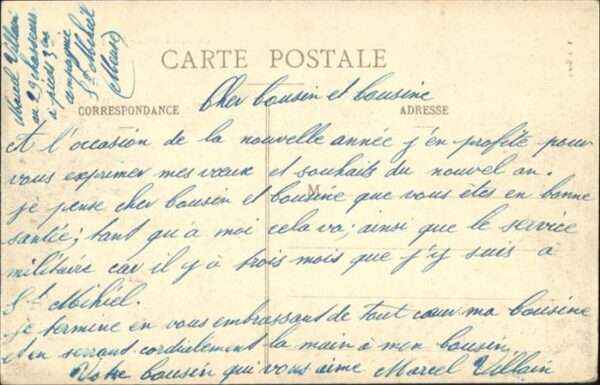 Marcel Villain
au 29 chasseurs
à pieds 3me
compagnie
St Mihiel
(Meuse)
CARTE POSTALE
CORRESPONDANCE
ADRESSE
Cher Cousin et Cousine
A l'occasion de la nouvelle année j'en profite pour
vous exprimer mes vœux et souhaits du nouvel an.
M
je pense cher Cousin et Cousine que vous êtes en bonne
santée; tant qu'à moi cela va; ainsi que le service
militaire car il y à trois mois que j'y suis à
St Mihiel.
je termine en vous embrassant de tout cœur ma Cousine
et en serrant cordialement la main à mon Cousin
Votre Cousin qui vous aime Marcel Villain